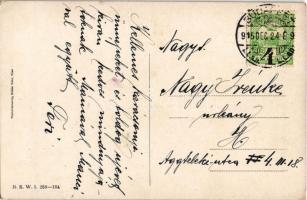 Kellemes karácsonyi
ünnepeket és boldog újévet
kíván kedves mindnyája-
toknak Mamával Manci-
val együtt
Teri
Nagys.
Nagy Irénke
úrhány
H
Aggteleki utca 4. III. 18.
915 DEC 24
B. K. W. I. 259—104